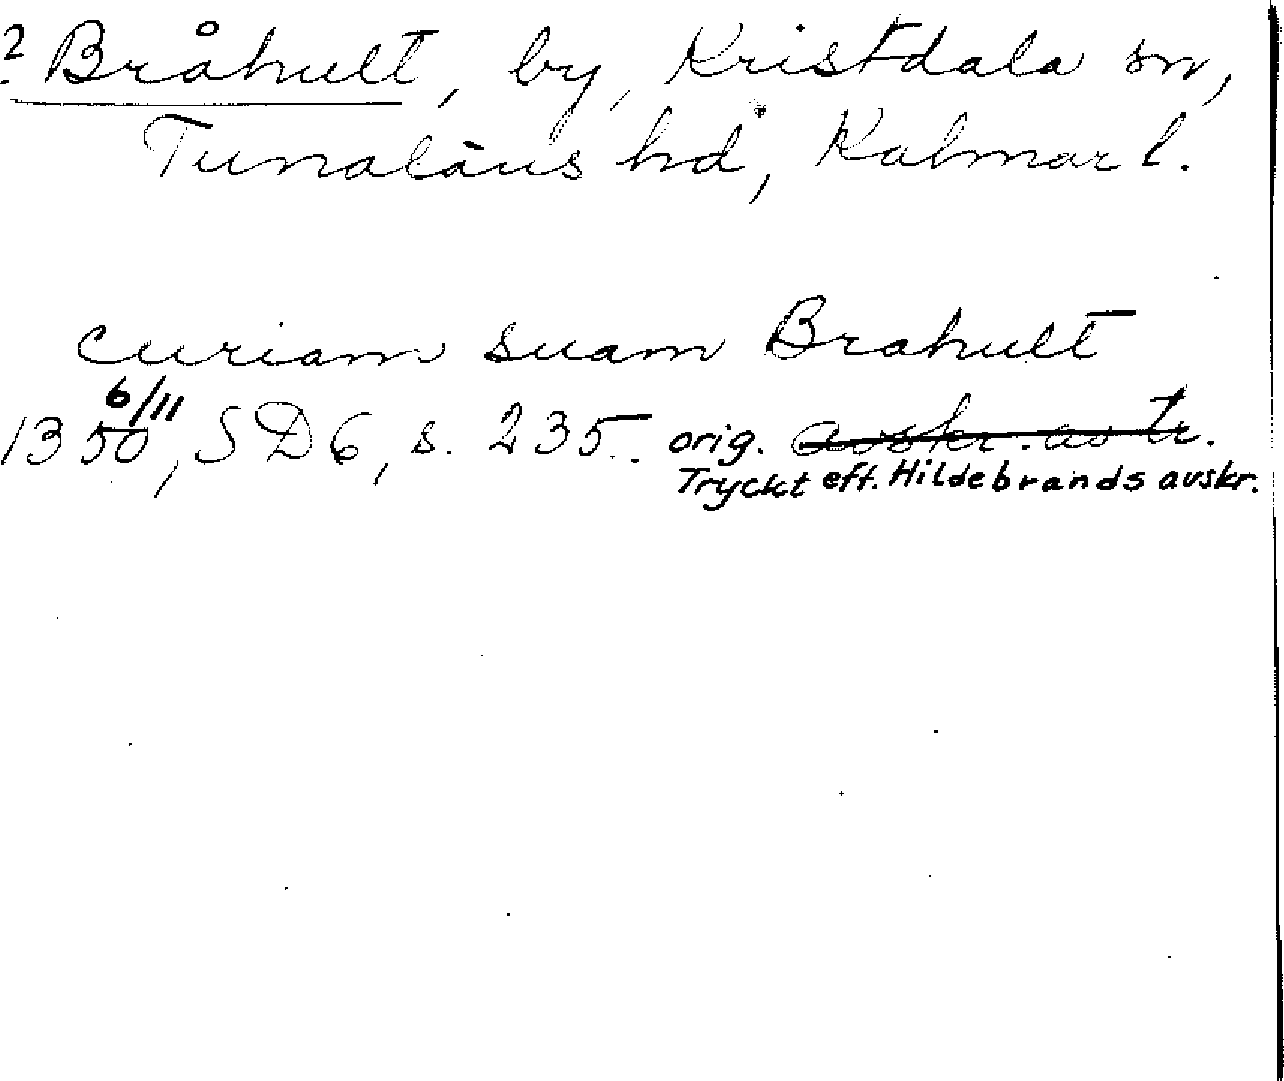 ? Bråhult, by, Kristdala sn,
Tunaläns hd, Kalmar l.
curiam suam Brahult
1350 6/11, SD6, s. 235. orig. avskr. av tr.
Tryckt eff. Hildebrands avskr.